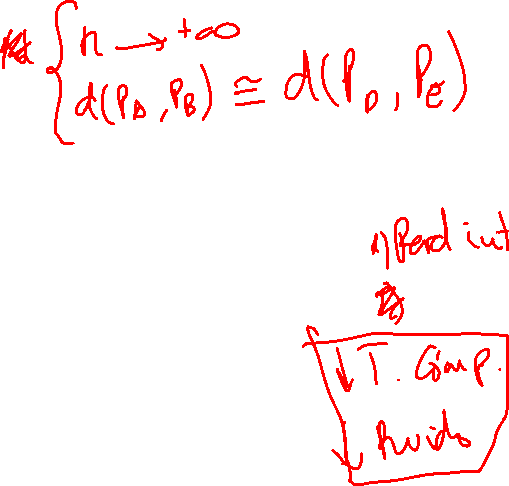 n → +∞
d(P_A, P_B) ≅ d(P_D, P_E)
1) Perd inf
↓ T. Comp.
↓ Ruido